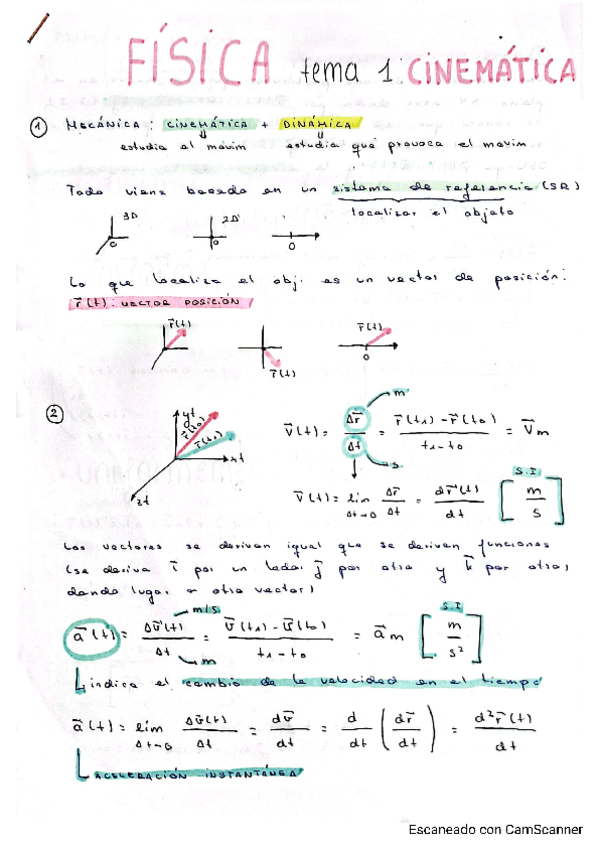 FÍSICA tema 1: CINEMÁTICA
① MECÁNICA: CINEMÁTICA + DINÁMICA
estudia el movim estudia que provoca el movim.
Todo viene basado en un sistema de referencia (SR)
localizar el objeto
3D 2D
0 0 0
Lo que localiza el obj. es un vector de posición:
r⃗(t): VECTOR POSICIÓN
r⃗(t) r⃗(t) r⃗(t)
0
② yt r⃗(t₀) r⃗(t₁) xt zt
v⃗(t) = Δr⃗/Δt = (r⃗(t₁) - r⃗(t₀))/(t₁ - t₀) = v⃗m
m
s
S.I
v⃗(t) = lim Δt→0 Δr⃗/Δt = dr⃗(t)/dt [m/s]
Los vectores se derivan igual que se derivan funciones
(se deriva i⃗ por un lado, j⃗ por otro y k⃗ por otro,
dando lugar a otro vector)
m/s S.I
a⃗(t) = Δv⃗(t)/Δt = (v⃗(t₁) - v⃗(t₀))/(t₁ - t₀) = a⃗m [m/s²]
m
indica el cambio de la velocidad en el tiempo
a⃗(t) = lim Δt→0 Δv⃗(t)/Δt = dv⃗/dt = d/dt (dr⃗/dt) = d²r⃗(t)/dt
ACELERACIÓN INSTANTÁNEA
Escaneado con CamScanner